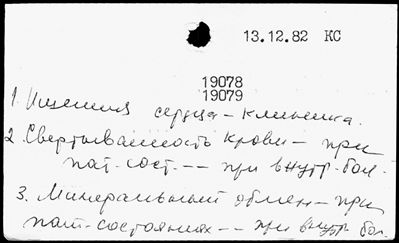 13.12.82 КС
19078
19079
1. Ишемия сердца – клиника.
2. Свертываемость крови – при
пат. сост. -- при внутр. бол.
3. Минеральный обмен – при
пат. состояниях -- при внутр. бол.